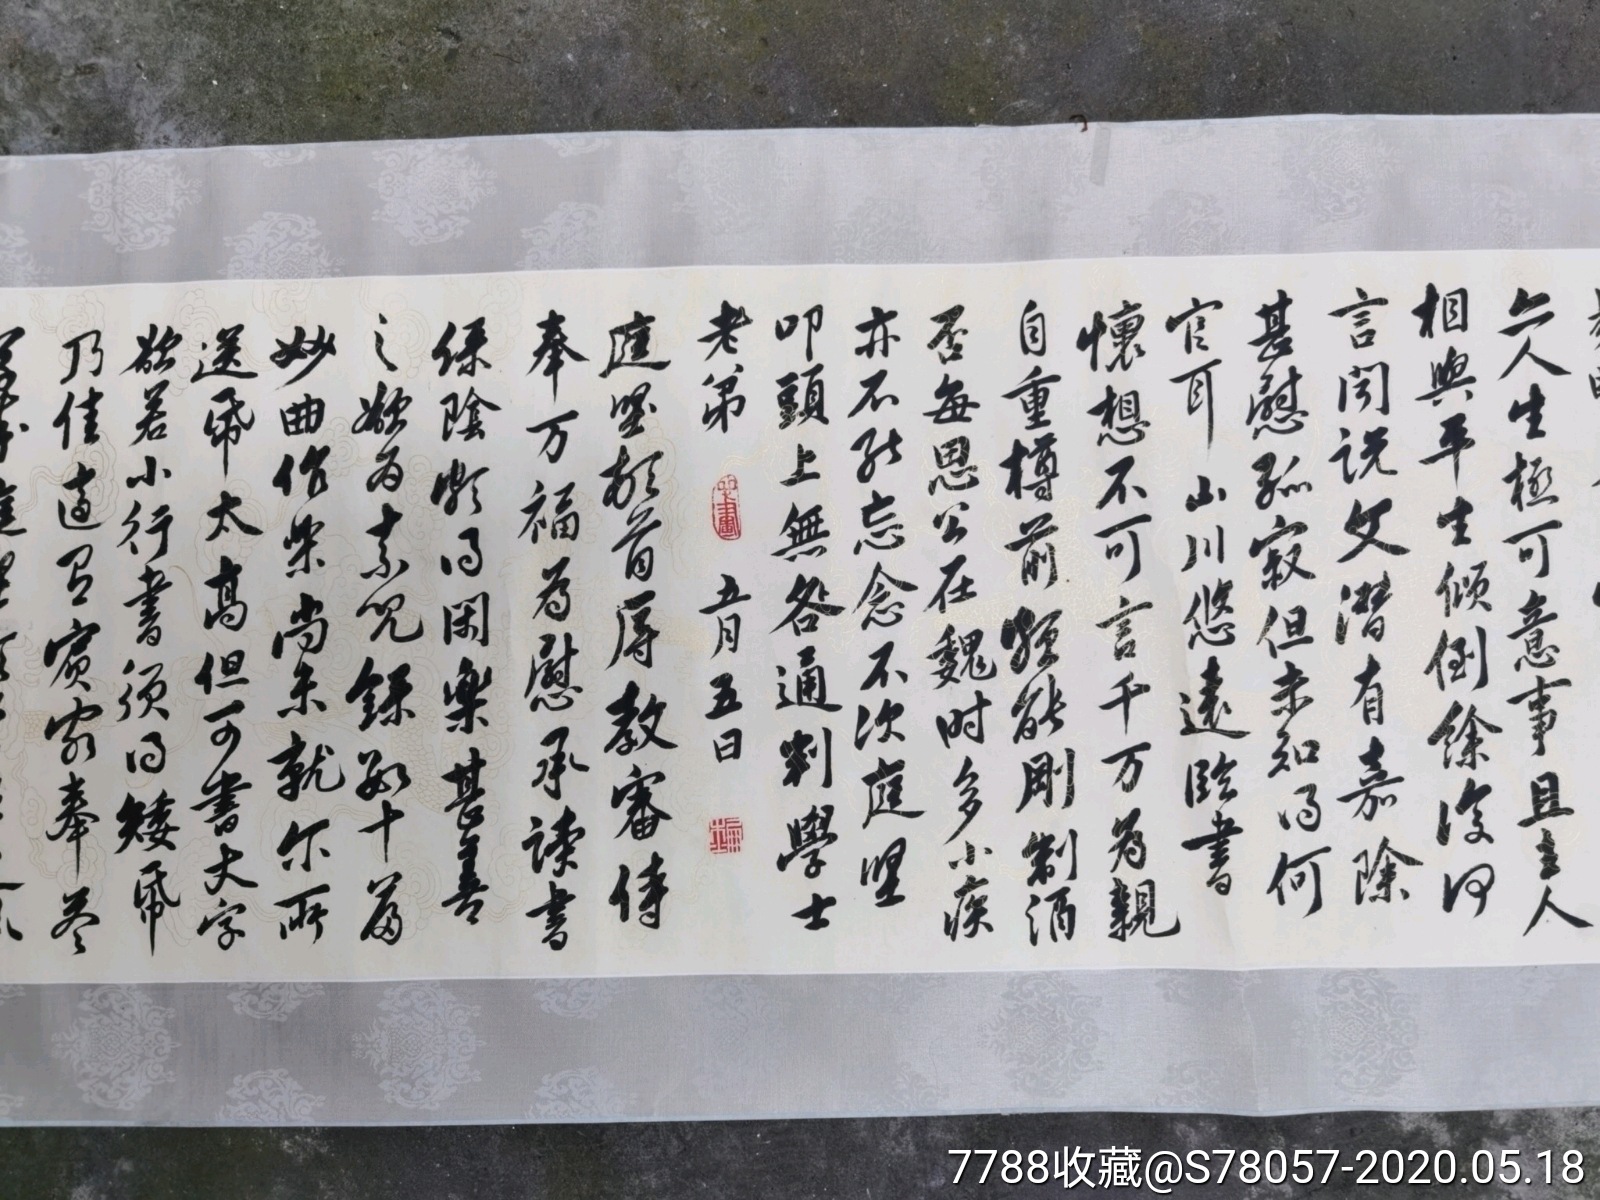 亦人生極可意事且主人
相與平生傾倒餘復何
言聞說文潛有嘉除
甚慰孤寂但未知得何
官耳山川悠遠臨書
懷想不可言千万為親
自重樽前頗能剛制酒
否每思公在魏时多小疾
亦不能忘念不次庭坚
叩頭上無咎通判學士
老弟 五月五日
庭坚頓首辱教審侍
奉万福為慰承读書
綠陰頗得閑樂甚善
之欲为素兒錄數十篇
妙曲作樂尚未就尔所
送紙太高但可書大字
欲若小行書須得矮紙
乃佳適有賓客奉答
7788收藏@S78057-2020.05.18